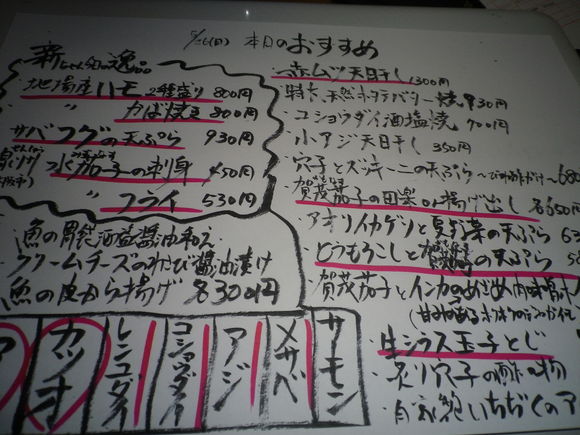 5/26(日) 本日のおすすめ
新ちゃん印の逸品
地場産ハモ 2種盛り 800円
〃 かば焼き 800円
サバフグの天ぷら 930円
水茄子の刺身 450円
〃 フライ 530円
魚の胃袋酒盗醤油和え
クリームチーズのわさび醤油漬け
魚の皮から揚げ 各300円
赤ムツ天日干し 1300円
特大天然ホタテバター焼 930円
コショウダイ酒塩焼 700円
小アジ天日干し 350円
穴子とズッキーニの天ぷら
賀茂茄子の田楽or揚げ出し 各650円
アオリイカゲソと夏野菜の天ぷら
とうもろこしと の天ぷら
賀茂茄子とインカのめざめ肉味噌
生シラス玉子とじ
炙り穴子の酢の物
いちぢくの
サーモン
メサバ
アジ
コショウダイ
レンコダイ
カツオ